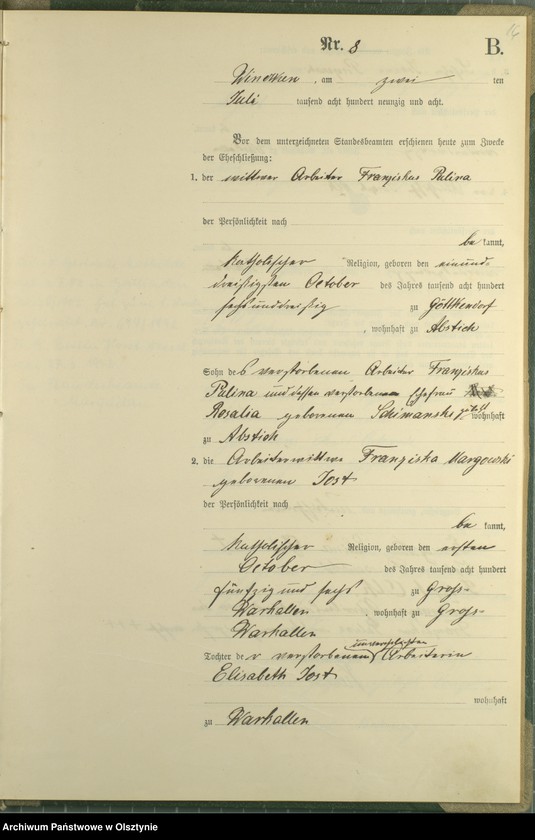 Nr. 8
B.
Winowen, am zwei ten
Juli tausend acht hundert neunzig und acht.
Vor dem unterzeichneten Standesbeamten erschienen heute zum Zwecke
der Eheschließung:
1. der wittwer Arbeiter Franziskus Palina
der Persönlichkeit nach
be kannt,
katholischer Religion, geboren den einund-
dreißigsten October des Jahres tausend acht hundert
sechsunddreißig zu Göttkendorf
, wohnhaft zu Abstich
Sohn des verstorbenen Arbeiter Franziskus
Palina und dessen verstorbenen Ehefrau
Rosalia geborenen Schimanski zuletzt wohnhaft
zu Abstich
2. die Arbeiterwittwe Franziska Margowski
geborenen Jost
der Persönlichkeit nach
be kannt,
katholischer Religion, geboren den ersten
October des Jahres tausend acht hundert
fünfzig und sechs zu Groß-
Warkallen, wohnhaft zu Groß-
Warkallen
Tochter der verstorbenen unverehelichten Arbeiterin
Elisabeth Jost
wohnhaft
zu Warkallen
Archiwum Państwowe w Olsztynie